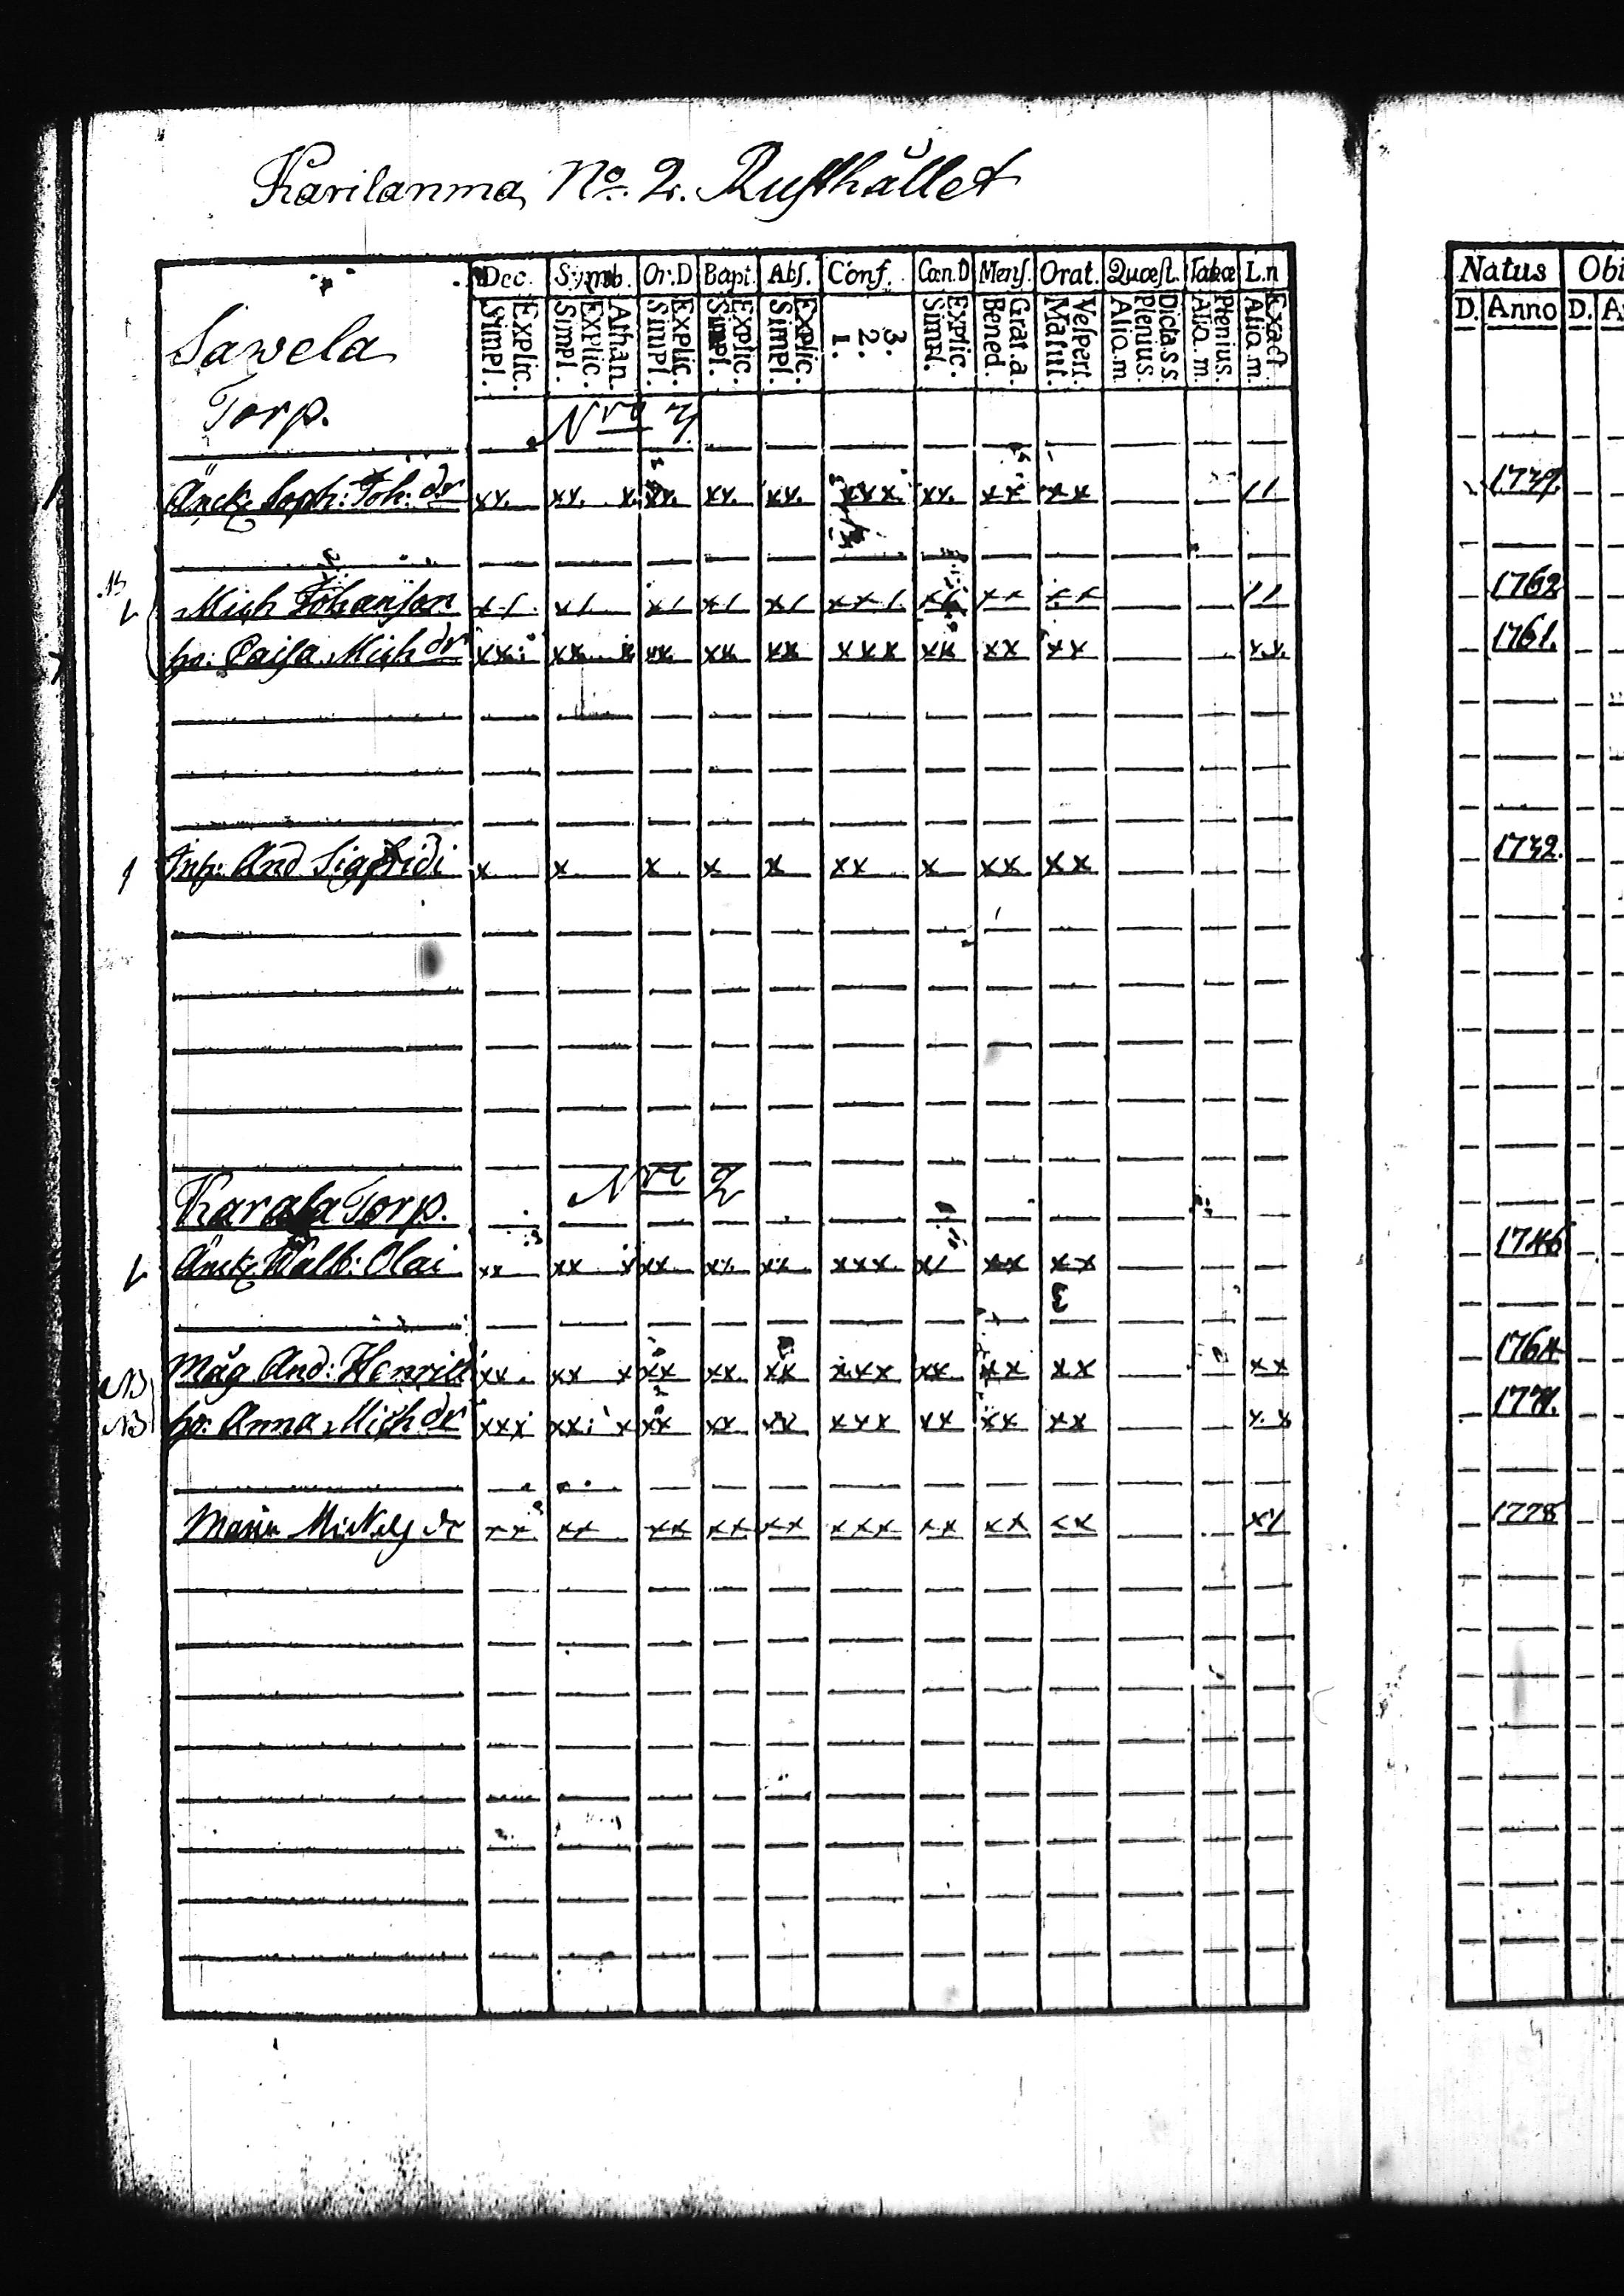 Karilanma, No. 2. Rusthållet
Dec. Symb. Or. D Bapt. Abs. Conf. Cœn. D Mens. Orat. Quæst. Tabæ L. n Natus Obi
Explic. Simpl. Athan. Explic. Simpl. Explic. Simpl. Explic. Simpl. Explic. Simpl. 3. 2. 1. Explic. Simpl. Grat. a. Bened. Vespert. Matut. Dicta. s s Plenius. Aliq. m Plenius. Aliq. m. Exact. Aliq. m. D. Anno D. A
Sawela
Torp. Nro
Änck. Soph: Joh: dr xx. xx. x. xx. xx. xx. xxx. xx. xx xx 11
Mich Johansson x/ x/ x/ x/ x/ xx/ x/ xx xx 11 1762
ho: Caisa Mich dr xx xx x xx xx xx xxx xx xx xx xx 1761.
Inh: And Sigfridi x x x x x xx x xx xx 1732.
Karala Torp. Nro 2
Änck Walb: Olai xx xx x xx xx xx xxx x/ xx xx 1746
Måg And: Henrics xx xx x xx xx xx xxx xx xx xx xx 1764
ho: Anna Mich dr xxx xx x xx xx xx xxx xx xx xx xx 1771.
Maria Mickels dr xx xx xx xx xx xxx xx xx xx x/ 1778